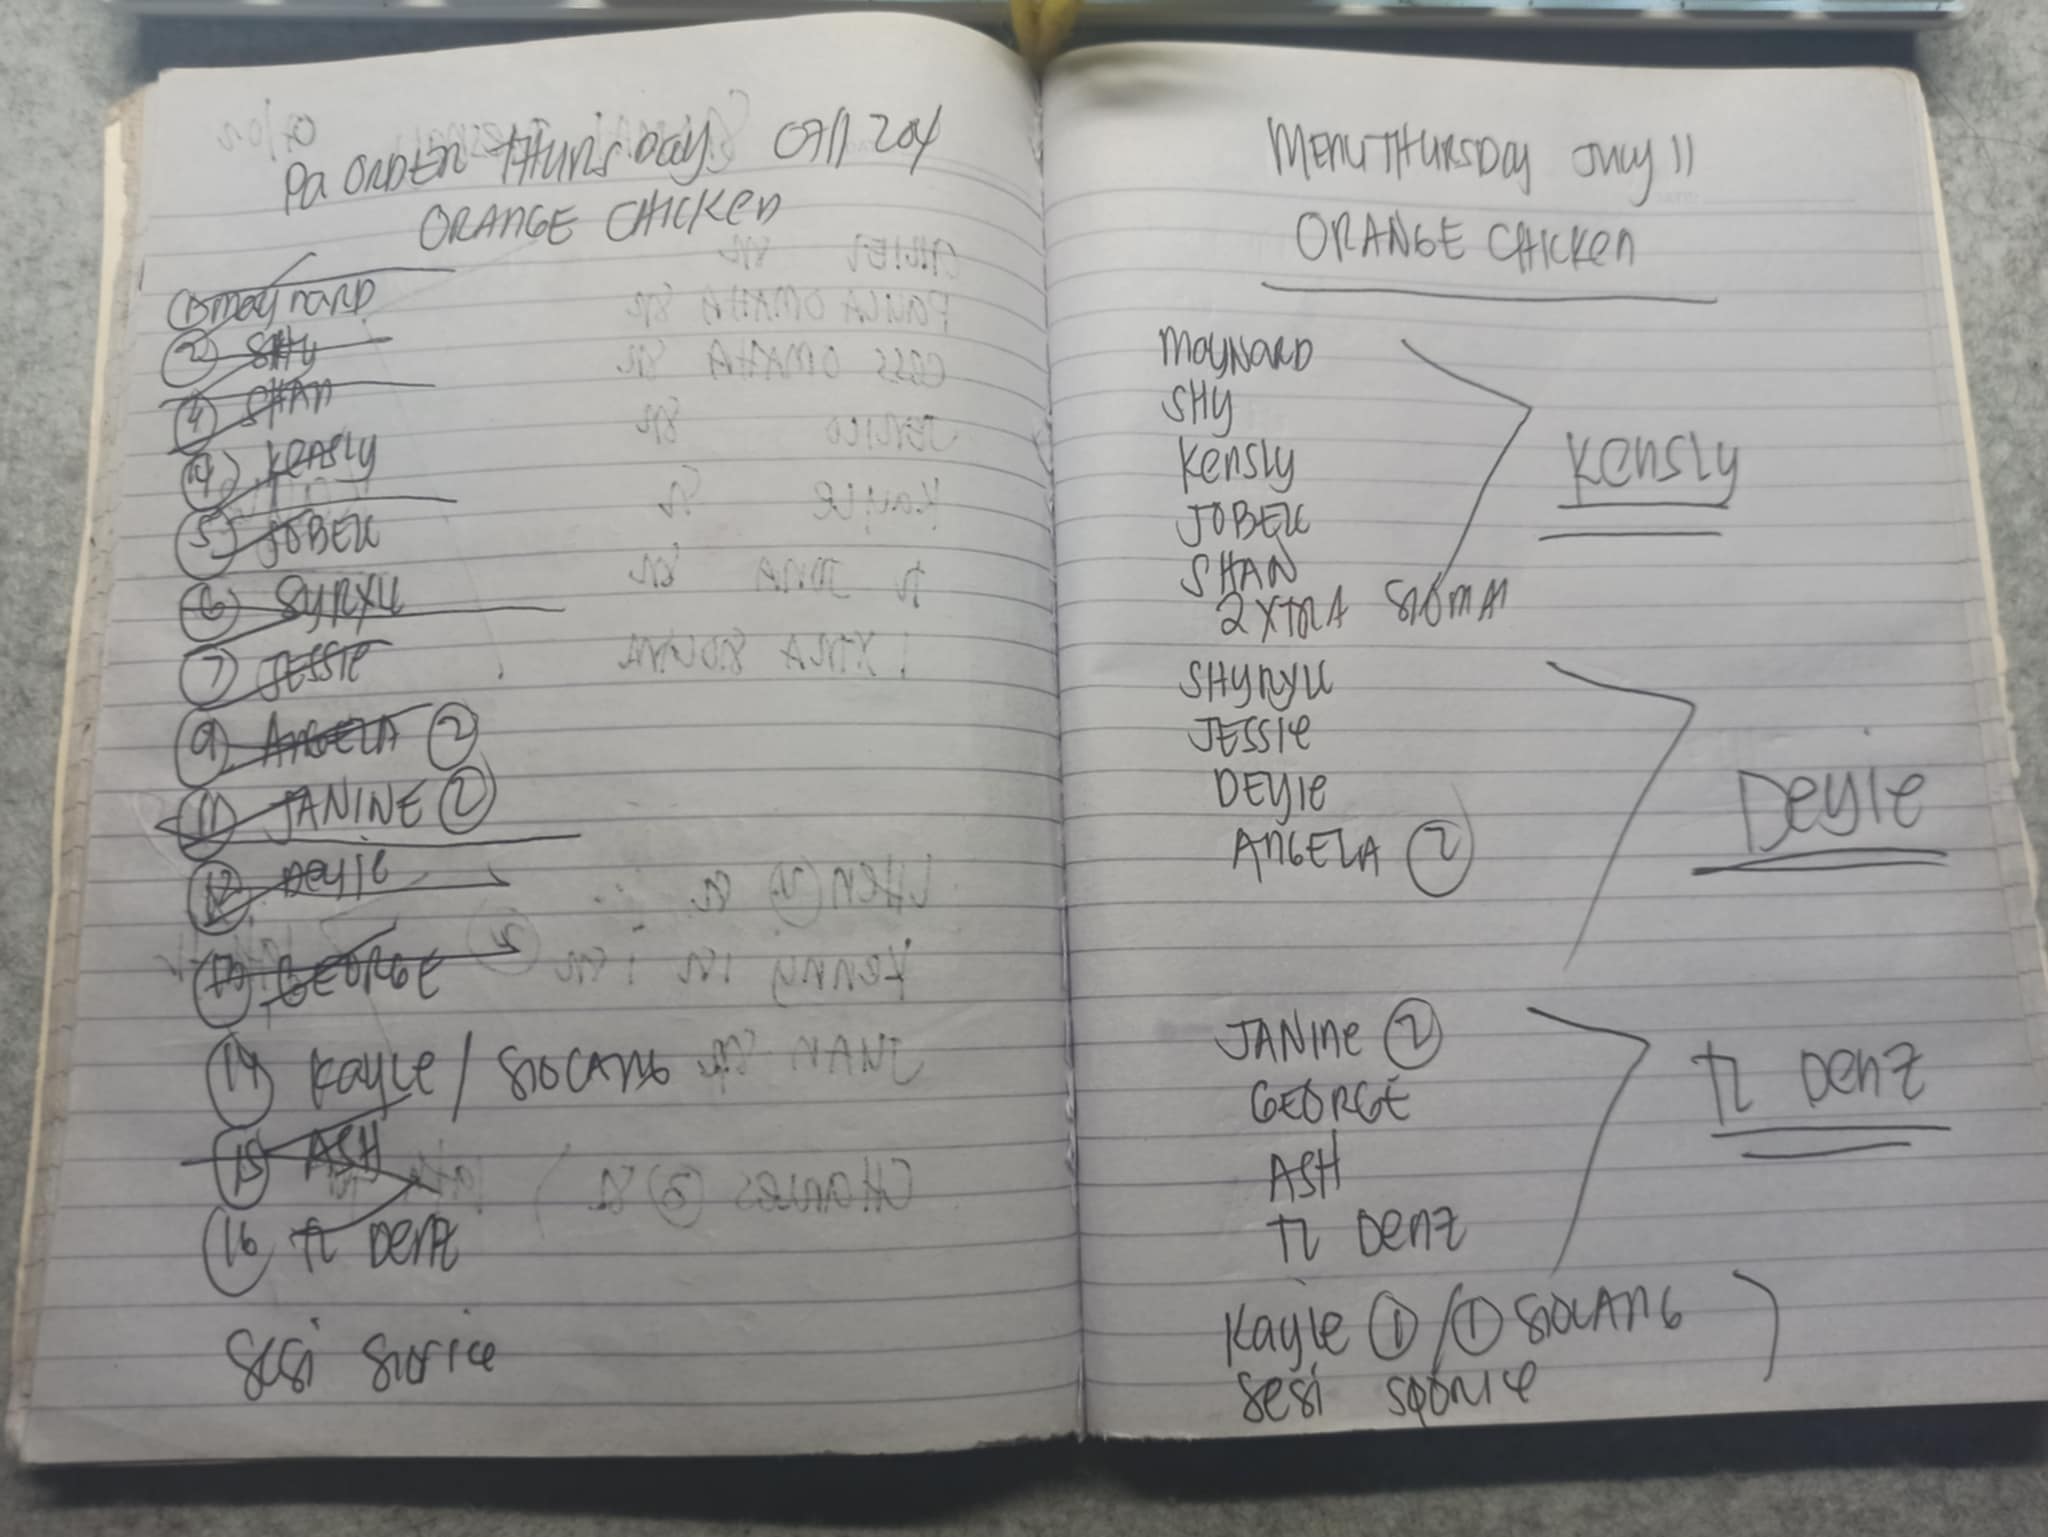 Pa ORDER THURSDay 0711 204
ORANGE CHICKEN
① maynard
② SHY
④ SHAN
④ Kensly
⑤ JOBEU
⑥ SYRXU
⑦ JESSIE
⑨ ANGELA ②
⑪ JANINE ②
⑫ Deyie
⑬ GEORGE
⑭ Kayle / SIOCANG
⑮ ASH
⑯ TL Denz
Sesi siorice
MENU THURSDay July 11
ORANGE CHICKEN
MayNARD
SHY
Kensly
JOBEU
SHAN
2 XTRA SIOMAI
Kensly
SHYRXU
JESSIE
DEYIE
ANGELA ②
Deyie
JANINE ②
GEORGE
ASH
TL Denz
TL Denz
Kayle ① / ① SIOCANG
Sesi